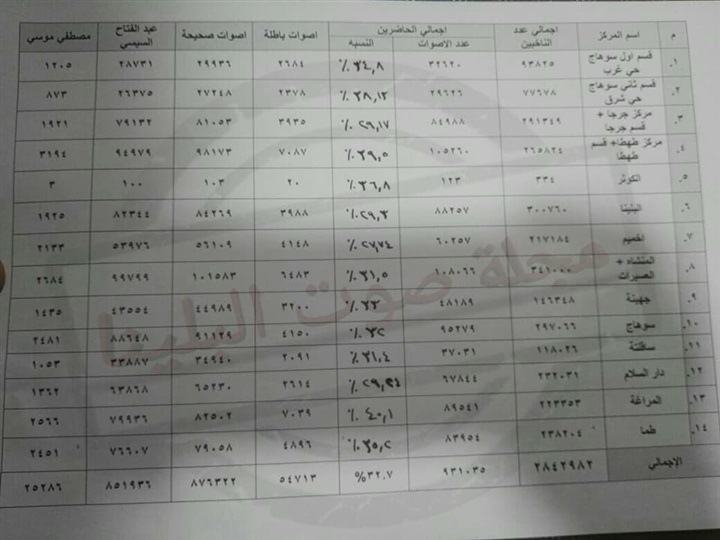 م | اسم المركز | اجمالي عدد الناخبين | اجمالي الحاضرين | اصوات باطلة | اصوات صحيحة | عبد الفتاح السيسي | مصطفي موسي
عدد الاصوات | النسبه
١. | قسم اول سوهاج حي غرب | ٩٣٨٢٥ | ٣٢٦٢٠ | ٣٤,٨٪ | ٢٦٨٤ | ٢٩٩٣٦ | ٢٨٧٣١ | ١٢٠٥
٢. | قسم ثاني سوهاج حي شرق | ٧٧٦٧٨ | ٢٩٦٢٦ | ٣٨,١٣٪ | ٢٣٧٨ | ٢٧٢٤٨ | ٢٦٣٧٥ | ٨٧٣
٣. | مركز جرجا + قسم جرجا | ٢٩١٣٤٩ | ٨٤٩٨٨ | ٢٩,١٧٪ | ٣٩٣٥ | ٨١٠٥٣ | ٧٩١٣٢ | ١٩٢١
٤. | مركز طهطا+ قسم طهطا | ٢٦٥٨٢٤ | ١٠٥٢٦٠ | ٣٩,٥٪ | ٧٠٨٧ | ٩٨١٧٣ | ٩٤٩٧٩ | ٣١٩٤
٥. | الكوثر | ٣٣٤ | ١٢٣ | ٣٦,٨٪ | ٢٠ | ١٠٣ | ١٠٠ | ٣
٦. | البلينا | ٣٠٠٧٦٠ | ٨٨٢٥٧ | ٢٩,٣٪ | ٣٩٨٨ | ٨٤٢٦٩ | ٨٢٣٤٤ | ١٩٢٥
٧. | اخميم | ٢١٧١٨٤ | ٦٠٢٥٧ | ٢٧,٧٤٪ | ٤١٤٨ | ٥٦١٠٩ | ٥٣٩٧٦ | ٢١٣٣
٨. | المنشاه + العسيرات | ٣٤١٠٠٠ | ١٠٨٠٦٦ | ٣١,٥٪ | ٦٤٨٣ | ١٠١٥٨٣ | ٩٩٧٩٩ | ٢٦٨٤
٩. | جهينة | ١٤٦٣٤٨ | ٤٨١٨٩ | ٣٣٪ | ٣٢٠٠ | ٤٤٩٨٩ | ٤٣٥٥٤ | ١٤٣٥
١٠. | سوهاج | ٢٩٧٠٦٦ | ٩٥٢٧٩ | ٣٢٪ | ٤١٥٠ | ٩١١٢٩ | ٨٨٦٤٨ | ٢٤٨١
١١. | ساقلتة | ١١٨٠٢٦ | ٣٧٠٣١ | ٣١,٤٪ | ٢٠٩١ | ٣٤٩٤٠ | ٣٣٨٨٧ | ١٠٥٣
١٢. | دار السلام | ٢٣٢٠٣١ | ٦٧٨٤٤ | ٢٩,٢٤٪ | ٢٦١٤ | ٦٥٢٣٠ | ٦٣٨٦٨ | ١٣٦٢
١٣. | المراغة | ٢٢٣٣٥٣ | ٨٩٥٤١ | ٤٠,١٪ | ٧٠٣٩ | ٨٢٥٠٢ | ٧٩٩٣٦ | ٢٥٦٦
١٤. | طما | ٢٣٨٢٠٤ | ٨٣٩٥٤ | ٣٥,٢٪ | ٤٨٩٦ | ٧٩٠٥٨ | ٧٦٦٠٧ | ٢٤٥١
الإجمالي | ٢٨٤٢٩٨٢ | ٩٣١٠٣٥ | ٣٢.٧% | ٥٤٧١٣ | ٨٧٦٣٢٢ | ٨٥١٩٣٦ | ٢٥٢٨٦
مجلة صوت البلينا